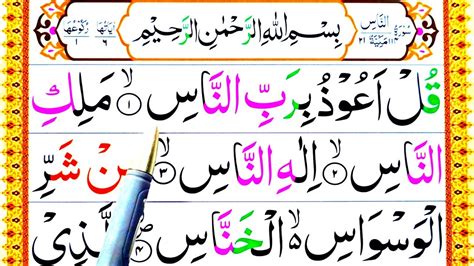 سُورَةُ النَّاسِ مَدَنِيَّةٌ ٢١ بِسْمِ اللهِ الرَّحْمٰنِ الرَّحِيْمِ اٰيَاتُهَا ٦ رُكُوْعُهَا ١
قُلْ اَعُوْذُ بِرَبِّ النَّاسِ ۙ﴿١﴾ مَلِكِ
النَّاسِ ۙ﴿٢﴾ اِلٰهِ النَّاسِ ۙ﴿٣﴾ مِنْ شَرِّ
الْوَسْوَاسِ ۙ۬ الْخَنَّاسِ ۪ۙ﴿٤﴾ الَّذِيْ